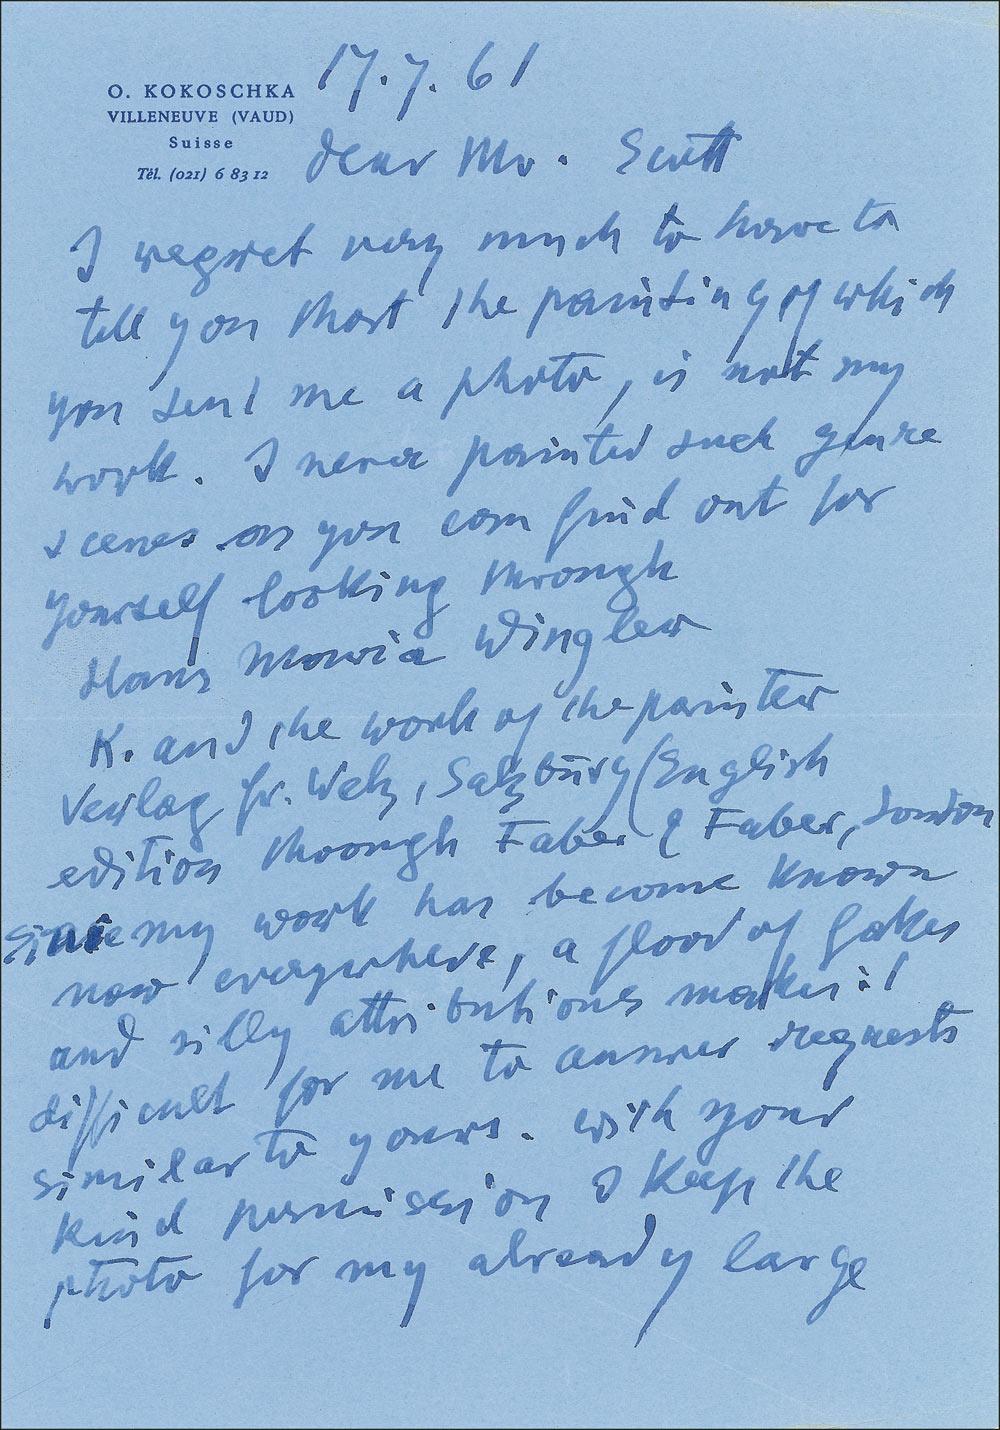 O. KOKOSCHKA
VILLENEUVE (VAUD)
Suisse
Tél. (021) 6 83 12
17.7.61
dear Mr. Scott
I regret very much to have to
tell you that the painting of which
you sent me a photo, is not my
work. I never painted such genre
scenes as you can find out for
yourself looking through
Hans Maria Wingler
K. and the work of the painter
Verlag fr. Welz, Salzburg (English
edition through Faber & Faber, London
since my work has become known
now everywhere, a flood of fakes
and silly attributions makes it
difficult for me to answer requests
similar to yours. With your
kind permission I keep the
photo for my already large